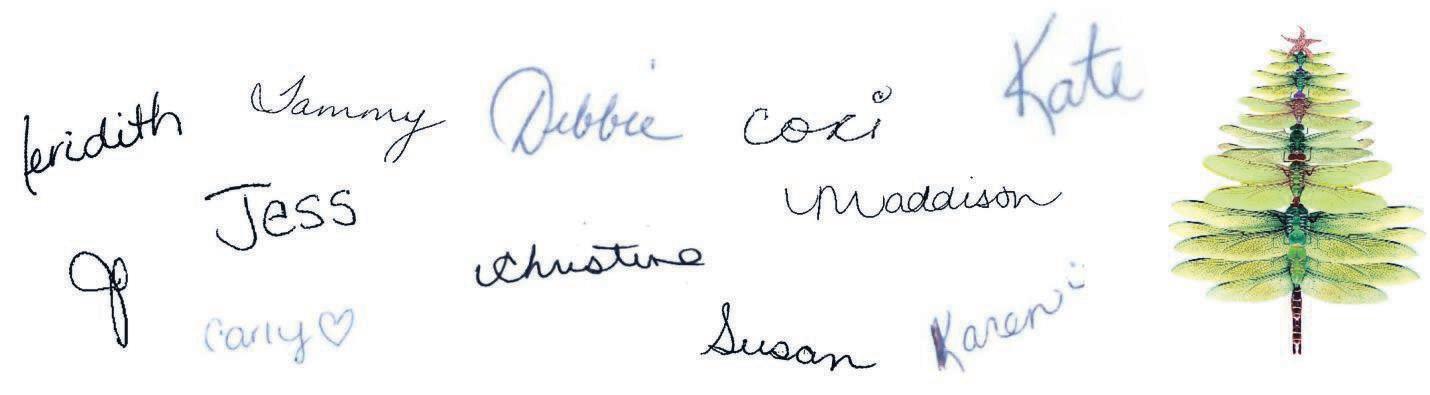 Kate
Tammy
Debbie
Cori
Jess
Maddison
Christine
Carly♡
Susan
Karen